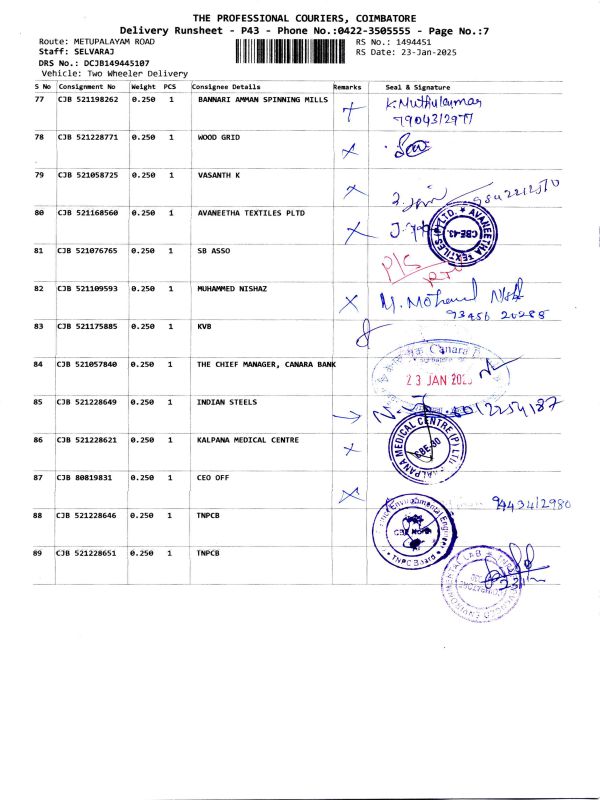 THE PROFESSIONAL COURIERS, COIMBATORE
Delivery Runsheet - P43 - Phone No.:0422-3505555 - Page No.:7
Route: METUPALAYAM ROAD RS No.: 1494451
Staff: SELVARAJ RS Date: 23-Jan-2025
DRS No.: DCJB149445107
Vehicle: Two Wheeler Delivery
S No Consignment No Weight PCS Consignee Details Remarks Seal & Signature
77 CJB 521198262 0.250 1 BANNARI AMMAN SPINNING MILLS K. Muthukumar
7904312977
78 CJB 521228771 0.250 1 WOOD GRID
79 CJB 521058725 0.250 1 VASANTH K
80 CJB 521168560 0.250 1 AVANEETHA TEXTILES PLTD
AVANEETHA TEXTILES (P) LTD. CBE-43
81 CJB 521076765 0.250 1 SB ASSO P/S
82 CJB 521109593 0.250 1 MUHAMMED NISHAZ M. Mohamed
93456 20288
83 CJB 521175885 0.250 1 KVB
84 CJB 521057840 0.250 1 THE CHIEF MANAGER, CANARA BANK Canara
23 JAN 2025
85 CJB 521228649 0.250 1 INDIAN STEELS
86 CJB 521228621 0.250 1 KALPANA MEDICAL CENTRE
KALPANA MEDICAL CENTRE (P) LTD CBE-30
87 CJB 80819831 0.250 1 CEO OFF 9443412980
88 CJB 521228646 0.250 1 TNPCB
Environmental Engineer
TNPC Board
89 CJB 521228651 0.250 1 TNPCB